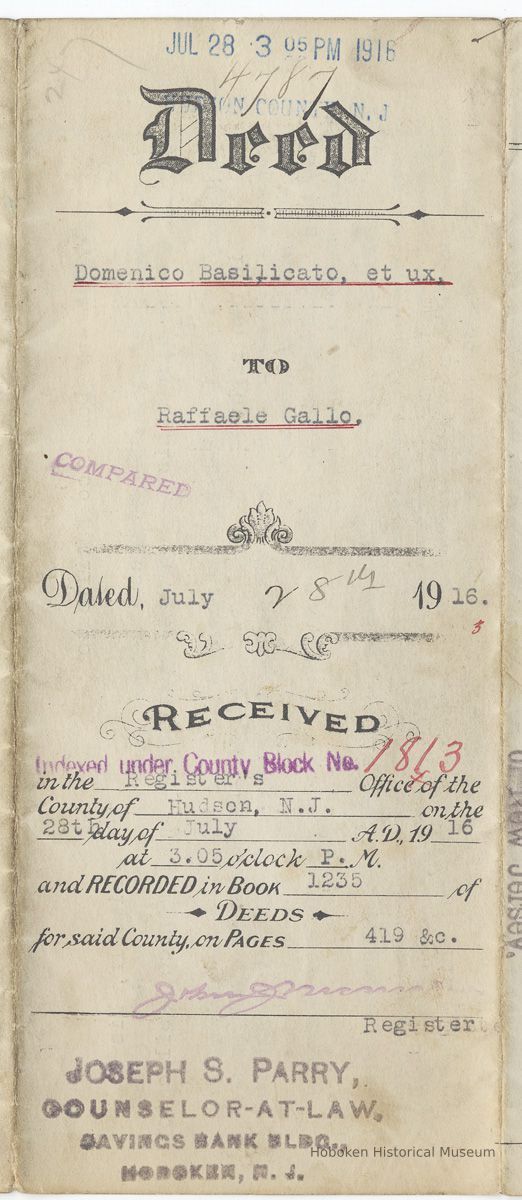 JUL 28 3 05 PM 1916
4787
COUNTY N. J
Deed
Domenico Basilicato, et ux,
TO
Raffaele Gallo,
COMPARED
Dated, July 28th 1916.
3
RECEIVED
Indexed under County Block No. 1813
in the Register's Office of the
County of Hudson, N.J. on the
28th day of July A.D., 1916
at 3.05 o'clock P. M.
and RECORDED in BOOK 1235 of
DEEDS
for said County, on PAGES 419 &c.
John J
Register
JOSEPH S. PARRY,
COUNSELOR-AT-LAW,
SAVINGS BANK BLDG.,
HOBOKEN, N. J.
Hoboken Historical Museum